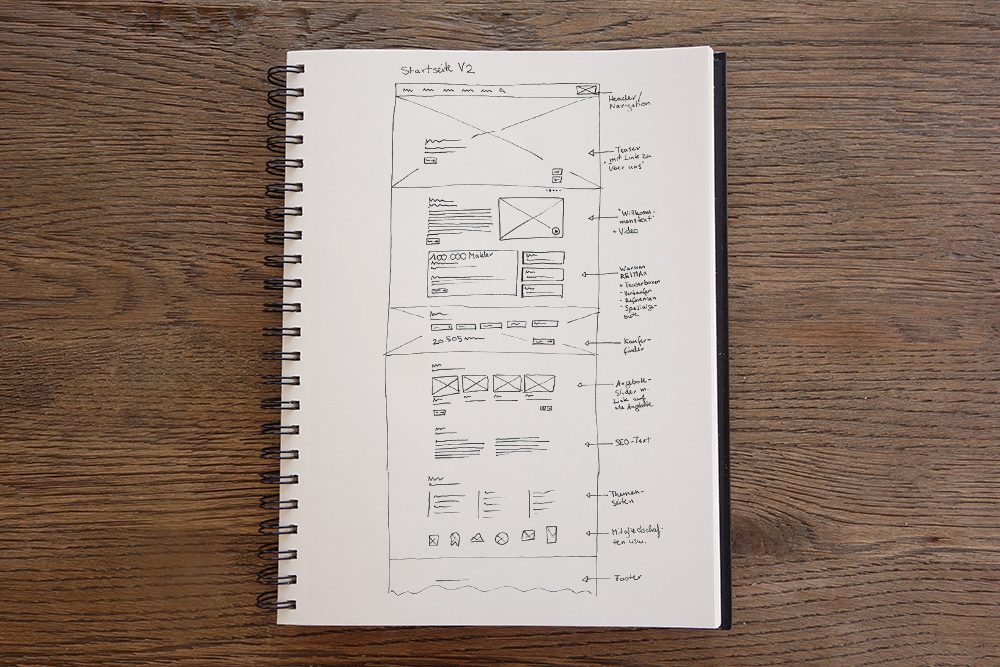 Startseite V2
Header/
Navigation
Teaser
"mit Link zu
über uns"
"Willkom-
menstext"
+ Video
100 000 Makler
Warum
RE/MAX
- Verkaufen
- Referenzen
20 505
finder
Angebots-
Slider m.
Link auf
alle Angebote
SEO-Text
Themen-
seiten
Mitgliedschaf-
ten usw.
Footer